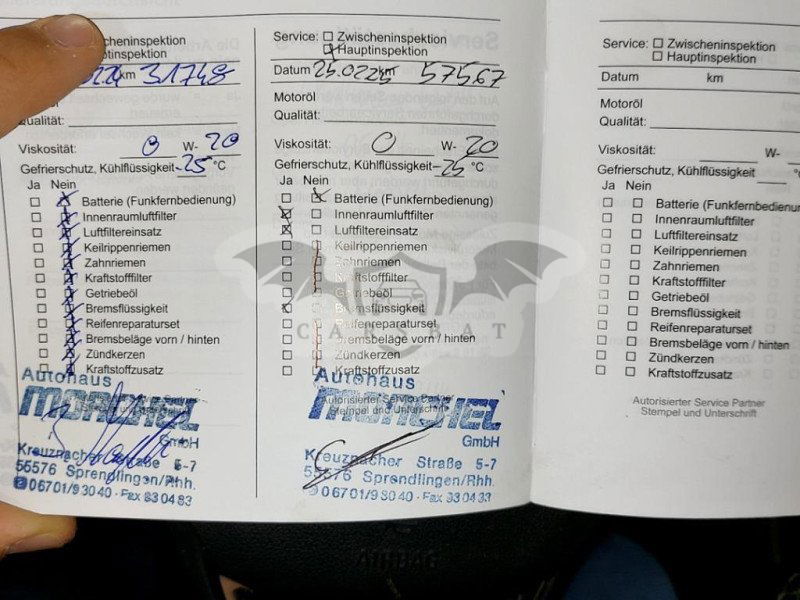 scheninspektion
ptinspektion
km 31748
Motoröl
Qualität:
Viskosität: 0 W- 20
Gefrierschutz, Kühlflüssigkeit -25 °C
Ja Nein
Batterie (Funkfernbedienung)
Innenraumluftfilter
Luftfiltereinsatz
Keilrippenriemen
Zahnriemen
Kraftstofffilter
Getriebeöl
Bremsflüssigkeit
Reifenreparaturset
Bremsbeläge vorn / hinten
Zündkerzen
Kraftstoffzusatz
Autohaus
GmbH
Kreuznacher Straße 5-7
55576 Sprendlingen/Rhh.
06701/93040 - Fax 93 04 33
Service: Zwischeninspektion
Hauptinspektion
Datum 25.0225 km 57567
Motoröl
Qualität:
Viskosität: 0 W- 20
Gefrierschutz, Kühlflüssigkeit -25 °C
Ja Nein
Batterie (Funkfernbedienung)
Innenraumluftfilter
Luftfiltereinsatz
Keilrippenriemen
Zahnriemen
Kraftstofffilter
Getriebeöl
Bremsflüssigkeit
Reifenreparaturset
Bremsbeläge vorn / hinten
Zündkerzen
Kraftstoffzusatz
Autohaus
Autorisierter Service Partner
Stempel und Unterschrift
GmbH
Kreuznacher Straße 5-7
55576 Sprendlingen/Rhh.
06701/93040 - Fax 93 04 33
Service: Zwischeninspektion
Hauptinspektion
Datum km
Motoröl
Qualität:
Viskosität: W-
Gefrierschutz, Kühlflüssigkeit °C
Ja Nein
Batterie (Funkfernbedienun
Innenraumluftfilter
Luftfiltereinsatz
Keilrippenriemen
Zahnriemen
Kraftstofffilter
Getriebeöl
Bremsflüssigkeit
Reifenreparaturset
Bremsbeläge vorn / hinten
Zündkerzen
Kraftstoffzusatz
Autorisierter Service Partner
Stempel und Unterschrift
CARSBAT
AIRBAG